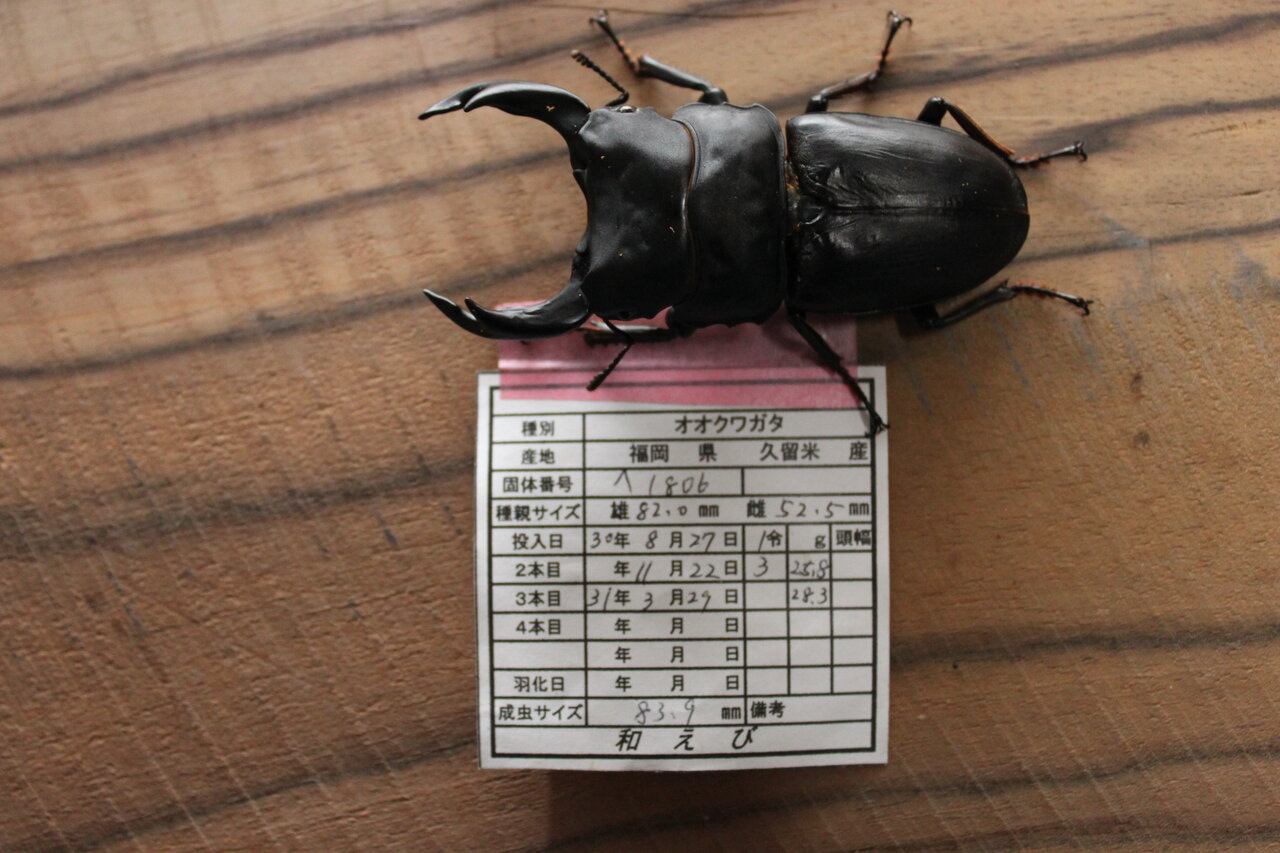 種別 オオクワガタ
産地 福岡 県 久留米 産
固体番号 へ1806
種親サイズ 雄 82.0 mm 雌 52.5 mm
投入日 30年 8月27日 1令 g 頭幅
2本目 年 11月22日 3 25.8
3本目 31年 3月29日 28.3
4本目 年 月 日
年 月 日
羽化日 年 月 日
成虫サイズ 83.9 mm 備考
和えび